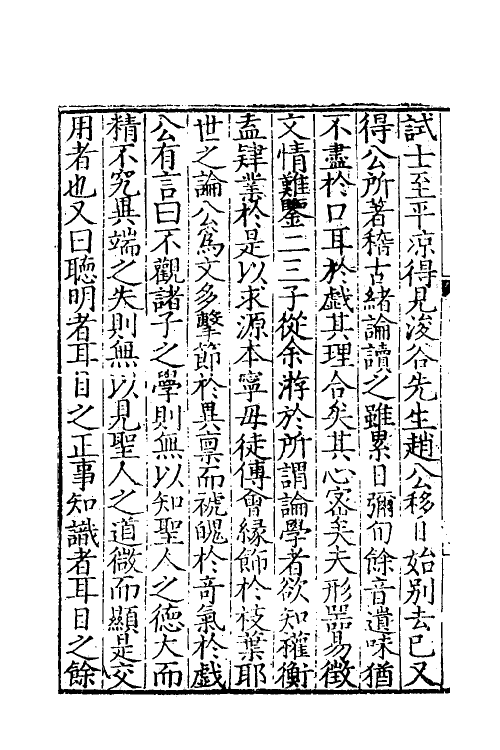 試士至平凉得見浚谷先生趙公移日始别去已又
得公所著稽古緒論讀之雖累日彌旬餘音遺味猶
不盡於口耳於戲其理合矣其心宻矣夫形器易徵
文情難鑒二三子從余游於所謂論學者欲知權衡
盍肄業於是以求源本寧毋徒傅會緣飾於枝葉耶
世之論公爲文多擊節於異禀而褫魄於奇氣於戲
公有言曰不觀諸子之學則無以知聖人之德大而
精不究異端之失則無以見聖人之道微而顯是交
用者也又曰聰明者耳目之正事知識者耳目之餘